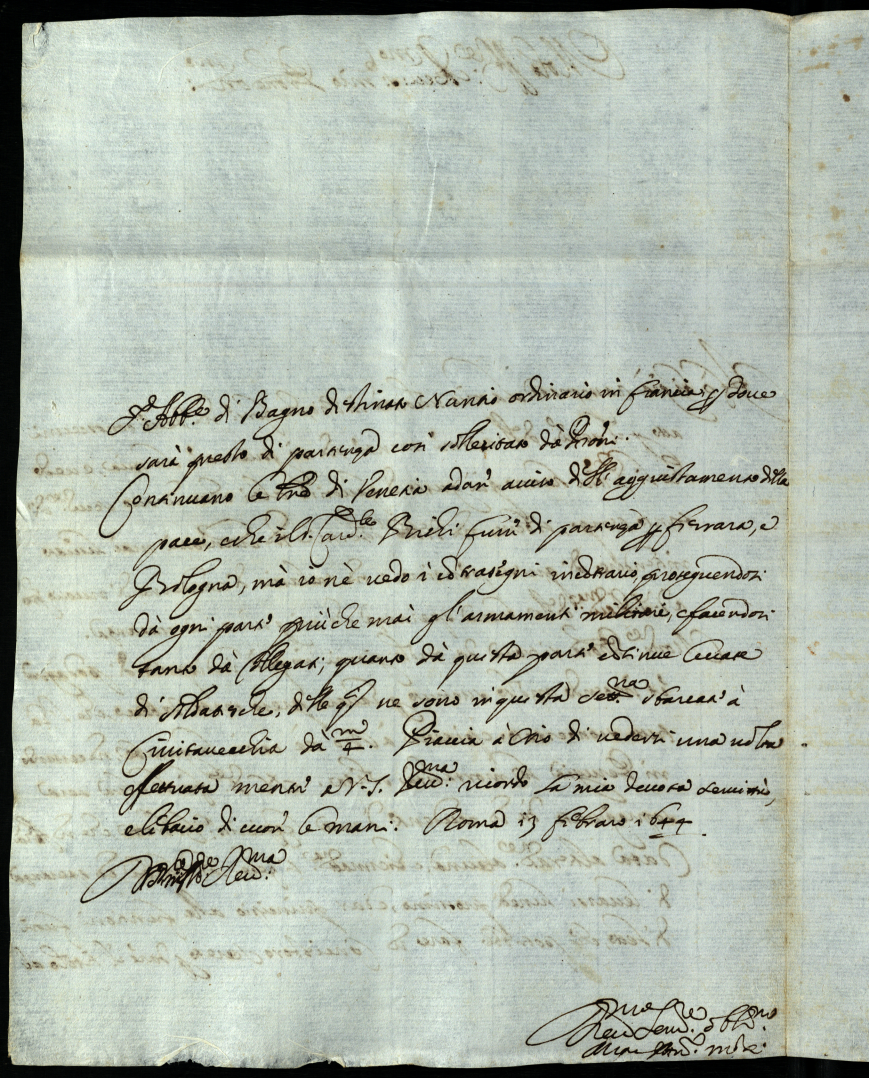 Abb.e di Bagno destinato Nuntio ordinario in francia, p dove
sarà presto di partenza così sollecitato dà
Continuano le di Venetia à dar' aviso dell' aggiustamento della
pace, e che il S. Card.le Bichi fusse di partenza p ferrara, e
Bologna, mà io nè vedo i contrasegni in contrario, proseguendosi
dà ogni part' più che mai gl' armamenti militari, e facendosi
tanto dà Collegati, quanto dà questa parte continue levate
di soldatesche, delle q.li ne sono in questa sett.na sbarcati à
Civitavecchia dà m/4. Piaccia à Dio di vedersi una volta
effettuata mentr' a V.S. Rev.ma ricordo la mia devota servitù,
e li bacio di cuore le mani. Roma 13 febraro 1644
Rev.ma